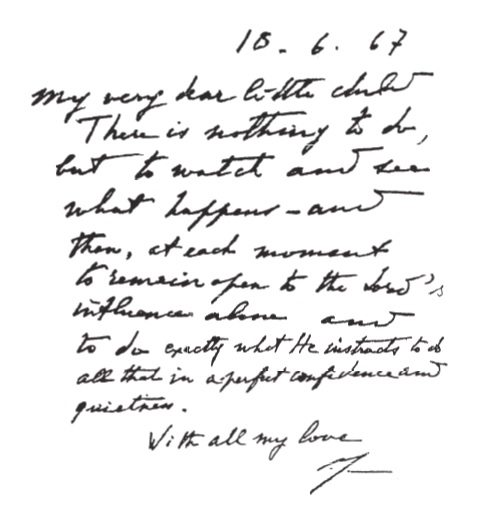 18.6.67
My very dear little child
There is nothing to do,
but to watch and see
what happens – and
then, at each moment
to remain open to the Lord's
influence alone and
to do exactly what He instructs to do
all that in a perfect confidence and
quietness.
With all my love